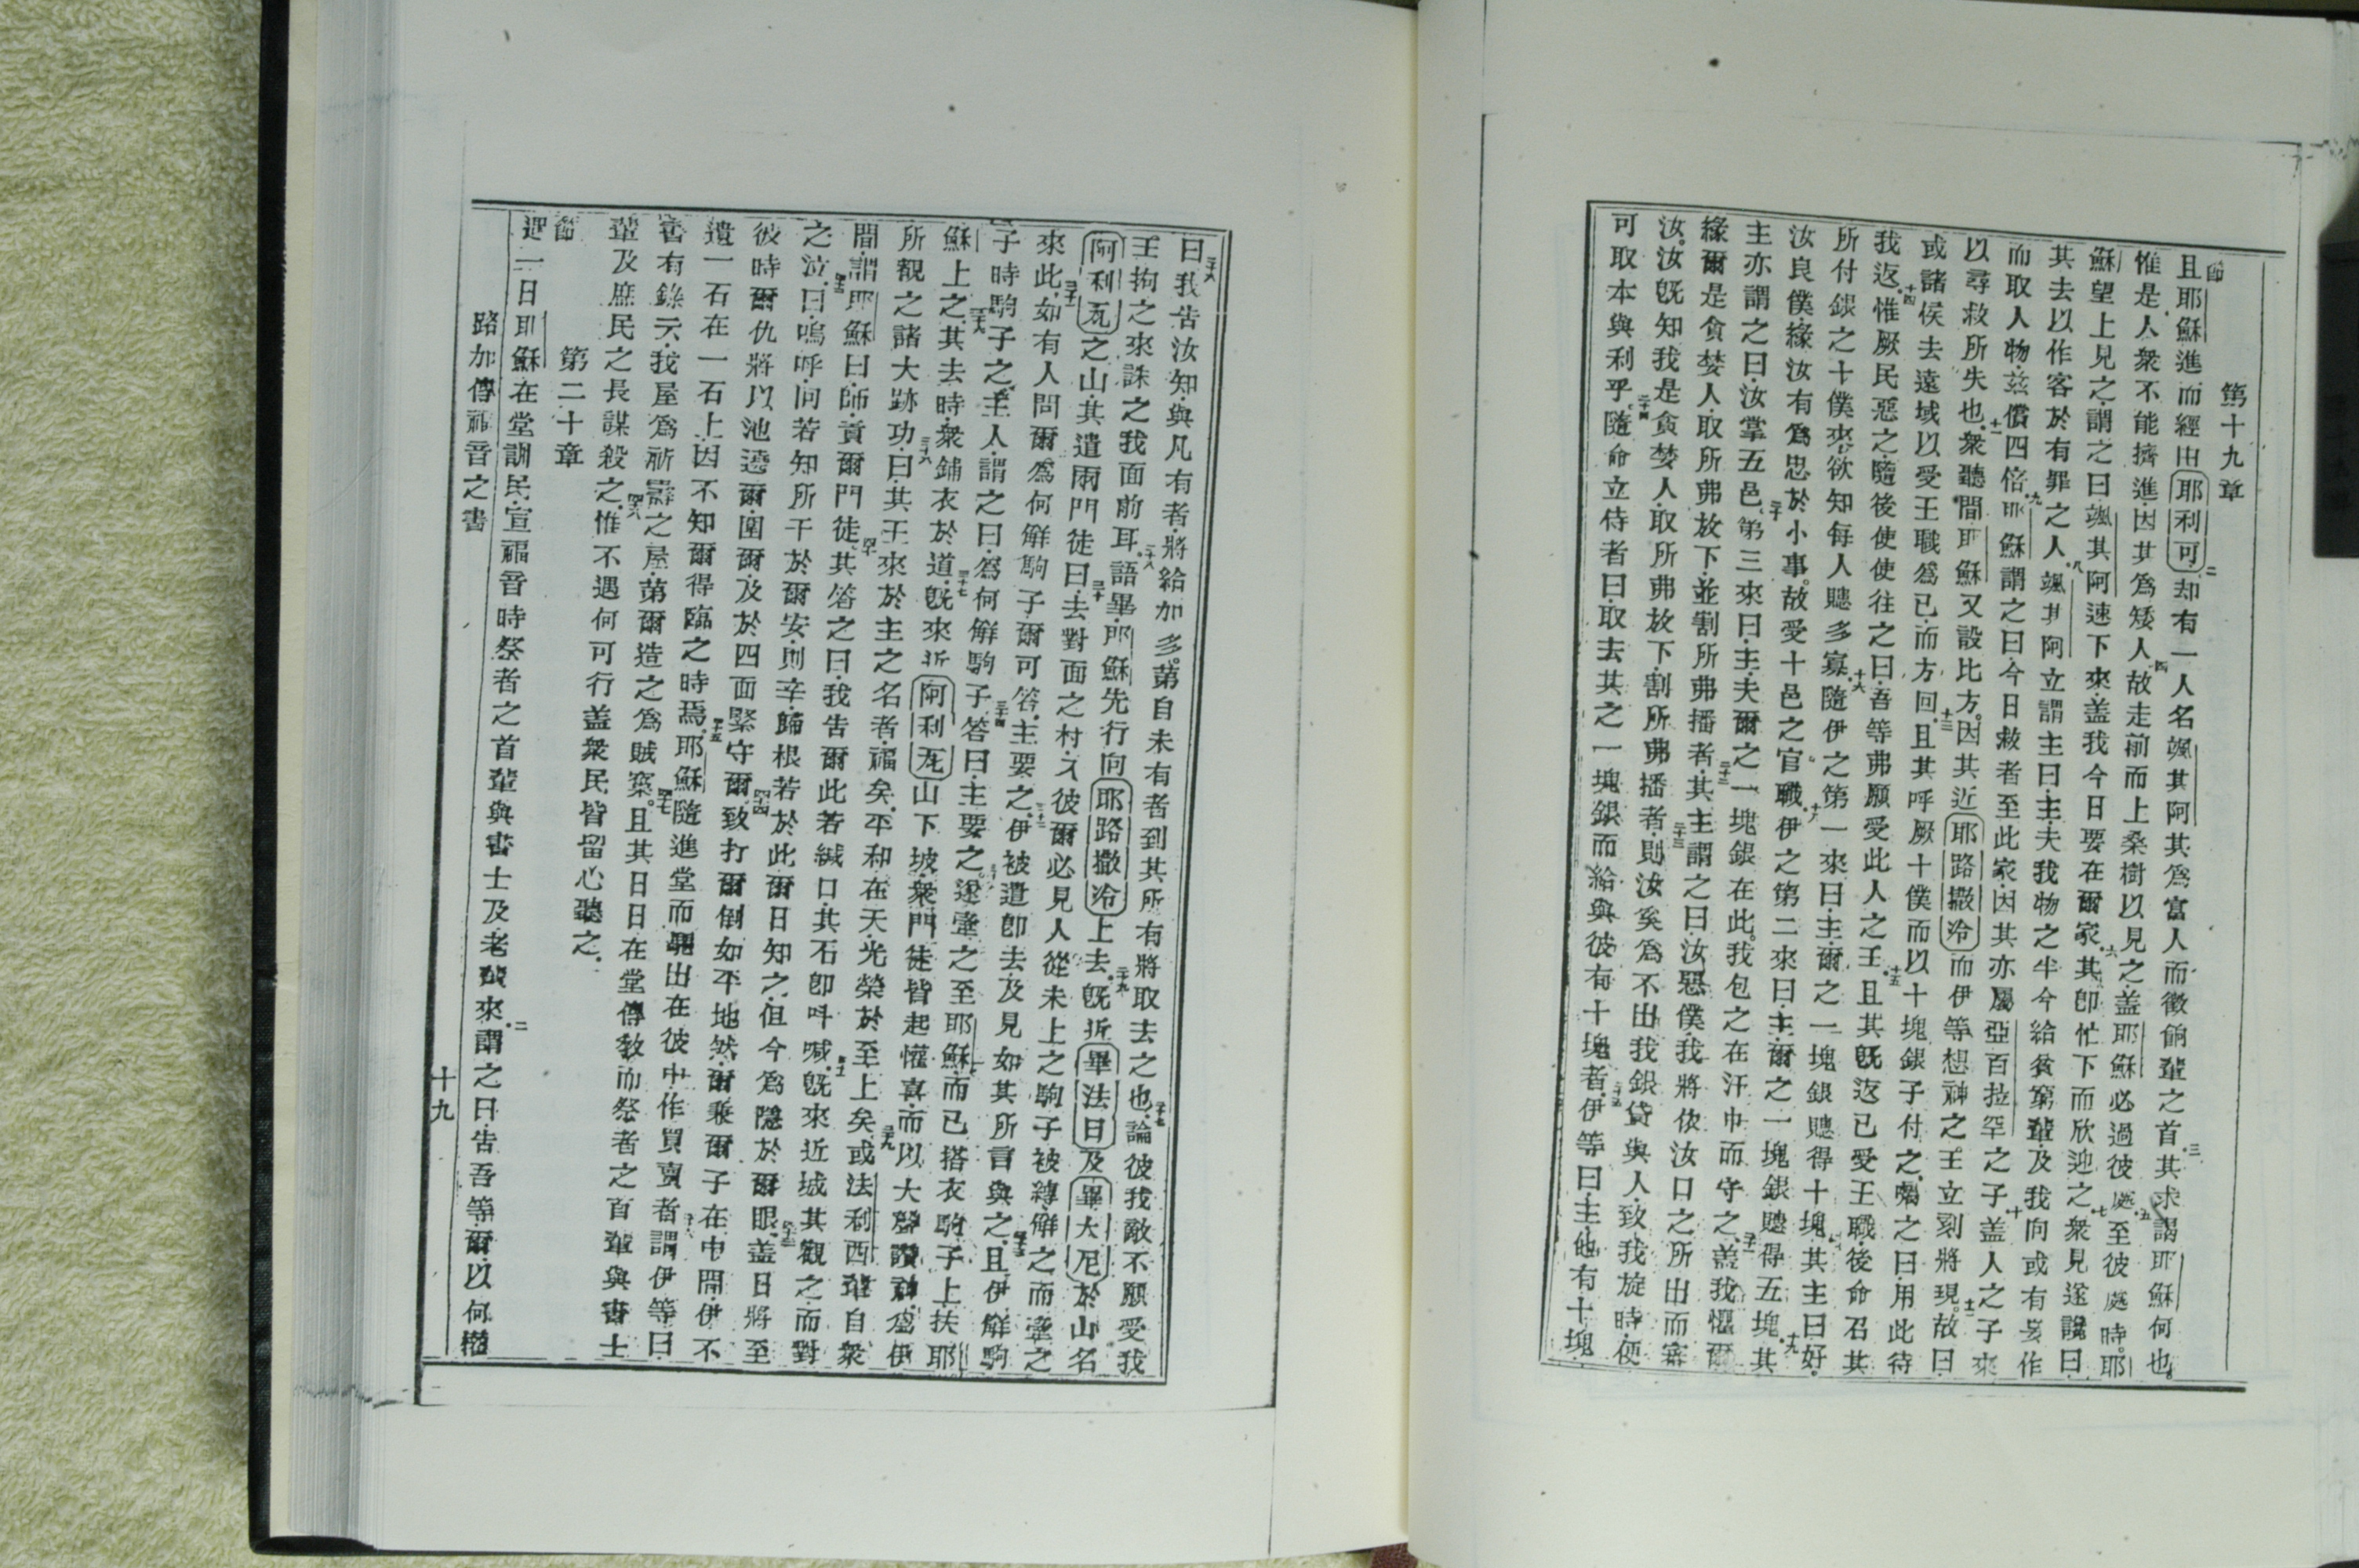 第十九章
節且耶穌進而經由耶利可二却有一人名颯其阿其為富人而徵餉輩之首三其求謁耶穌何也
惟是人衆不能擠進因其為矮人四故走前而上桑樹以見之盖耶穌必過彼處五至彼處時耶
穌望上見之謂之曰颯其阿速下來盖我今日要在爾家六其即忙下而欣迎之七衆見遂譏曰
其去以作客於有罪之人八颯其阿立謂主曰主夫我物之半今給貧窮輩及我向或有妄作
而取人物茲償四倍九耶穌謂之曰今日救者至此家因其亦屬亞百拉罕之子十盖人之子來
以尋救所失也十一衆聽間耶穌又設比方因其近耶路撒冷而伊等想神之王立刻將現十二故曰
或諸侯去遠域以受王職為已而方回十三且其呼厥十僕而以十塊銀子付之囑之曰用此待
我返十四惟厥民惡之隨後使使往之曰吾等弗願受此人之王十五且其旣返已受王職後命召其
所付銀之十僕來欲知每人賺多寡十六隨伊之第一來曰主爾之一塊銀賺得十塊十七其主曰好
汝良僕緣汝有為忠於小事故受十邑之官職十八伊之第二來曰主爾之一塊銀賺得五塊十九其
主亦謂之曰汝掌五邑二十第三來曰主夫爾之一塊銀在此我包之在汗巾而守之二十一盖我懼爾
緣爾是貪婪人取所弗放下並割所弗播者二十二其主謂之曰汝惡僕我將依汝口之所出而審
汝汝旣知我是貪婪人取所弗放下割所弗播者二十三則汝奚為不出我銀貸與人致我旋時便
可取本與利乎二十四隨命立侍者曰取去其之一塊銀而給與彼有十塊者二十五伊等曰主他有十塊
二十六曰我告汝知與凡有者將給加多第自未有者到其所有將取去之也二十七論彼我敵不願受我
王拘之來誅之我面前耳二十八語畢耶穌先行向耶路撒冷上去二十九旣近畢法日及畢大尼於山名
阿利瓦之山其遣兩門徒曰三十去對面之村入彼爾必見人從未上之駒子被縛解之而牽之
來此三十一如有人問爾為何解駒子爾可答主要之三十二伊被遣即去及見如其所言與之三十三且伊解駒
子時駒子之主人謂之曰為何解駒子三十四答曰主要之三十五遂牽之至耶穌而已搭衣駒子上扶耶
穌上之三十六其去時衆鋪衣於道三十七旣來近阿利瓦山下坡衆門徒皆起懽喜而以大聲讚神為伊
所觀之諸大跡功三十八曰其王來於主之名者福矣平和在天光榮於至上矣三十九或法利西輩自衆
間謂耶穌曰師責爾門徒四十其答之曰我告爾此若緘口其石即呌喊四十一旣來近城其觀之而對
之泣四十二曰嗚呼向若知所干於爾安則幸歸根若於此爾日知之但今為隱於爾眼四十三盖日將至
彼時爾仇將以池遶爾圍爾及於四面緊守爾四十四致打爾倒如平地然爾乘爾子在中間伊不
遺一石在一石上因不知爾得臨之時焉四十五耶穌隨進堂而驅出在彼中作買賣者四十六謂伊等曰
書有錄云我屋為祈禱之屋第爾造之為賊窠四十七且其日日在堂傳敎而祭者之首輩與書士
輩及庶民之長謀殺之四十八惟不遇何可行盖衆民皆留心聽之
第二十章
節迎一日耶穌在堂訓民宣福音時祭者之首輩與書士及老輩來二謂之曰告吾等爾以何權
路加傳福音之書
十九